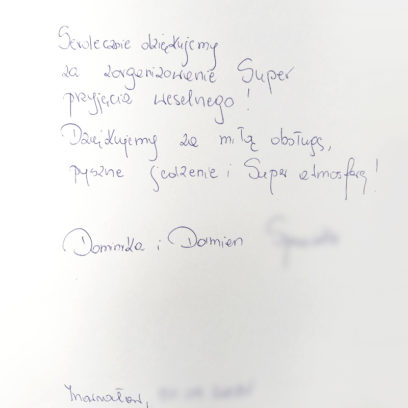 Serdecznie dziękujemy
za zorganizowanie Super
przyjęcia weselnego!
Dziękujemy za miłą obsługę,
pyszne jedzenie i Super atmosferę!
Dominika i Damian